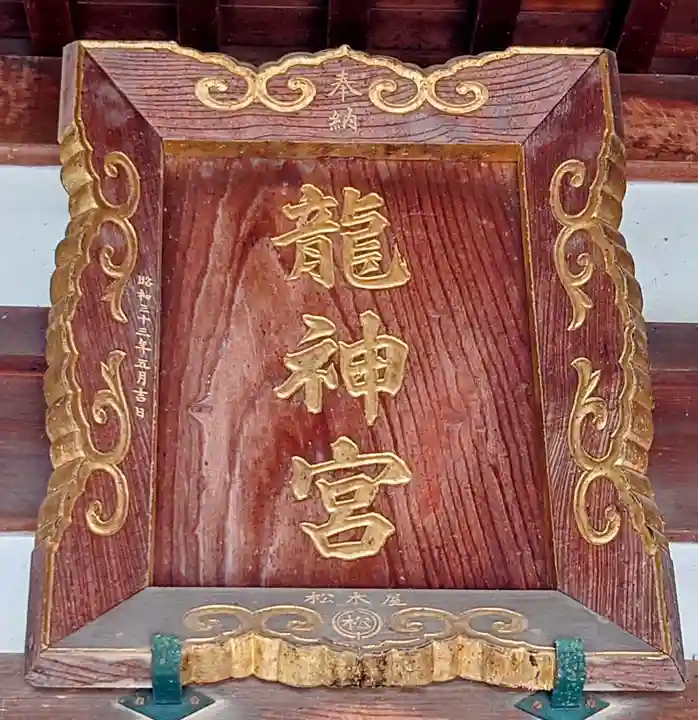 奉納
龍神宮
昭和三十三年五月吉日
松木屋
松